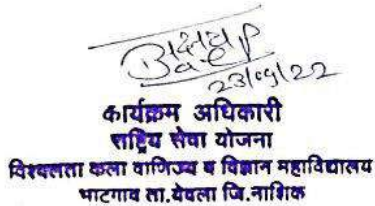 23/09/22
कार्यक्रम अधिकारी
राष्ट्रिय सेवा योजना
विश्वलता कला वाणिज्य व विज्ञान महाविद्यालय
भाटगाव ता.येवला जि.नाशिक